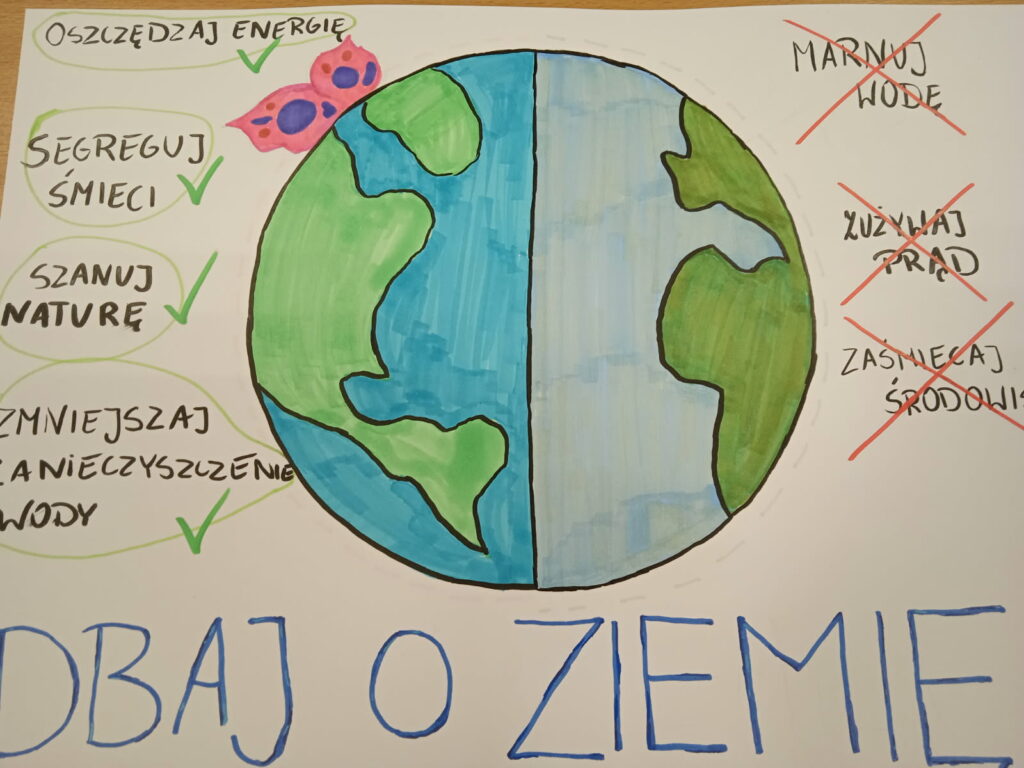 OSZCZĘDZAJ ENERGIĘ
SEGREGUJ
ŚMIECI
SZANUJ
NATURĘ
ZMNIEJSZAJ
ZANIECZYSZCZENIE
WODY
MARNUJ
WODĘ
ZUŻYWAJ
PRĄD
ZAŚMIECAJ
ŚRODOWIS
DBAJ O ZIEMIĘ